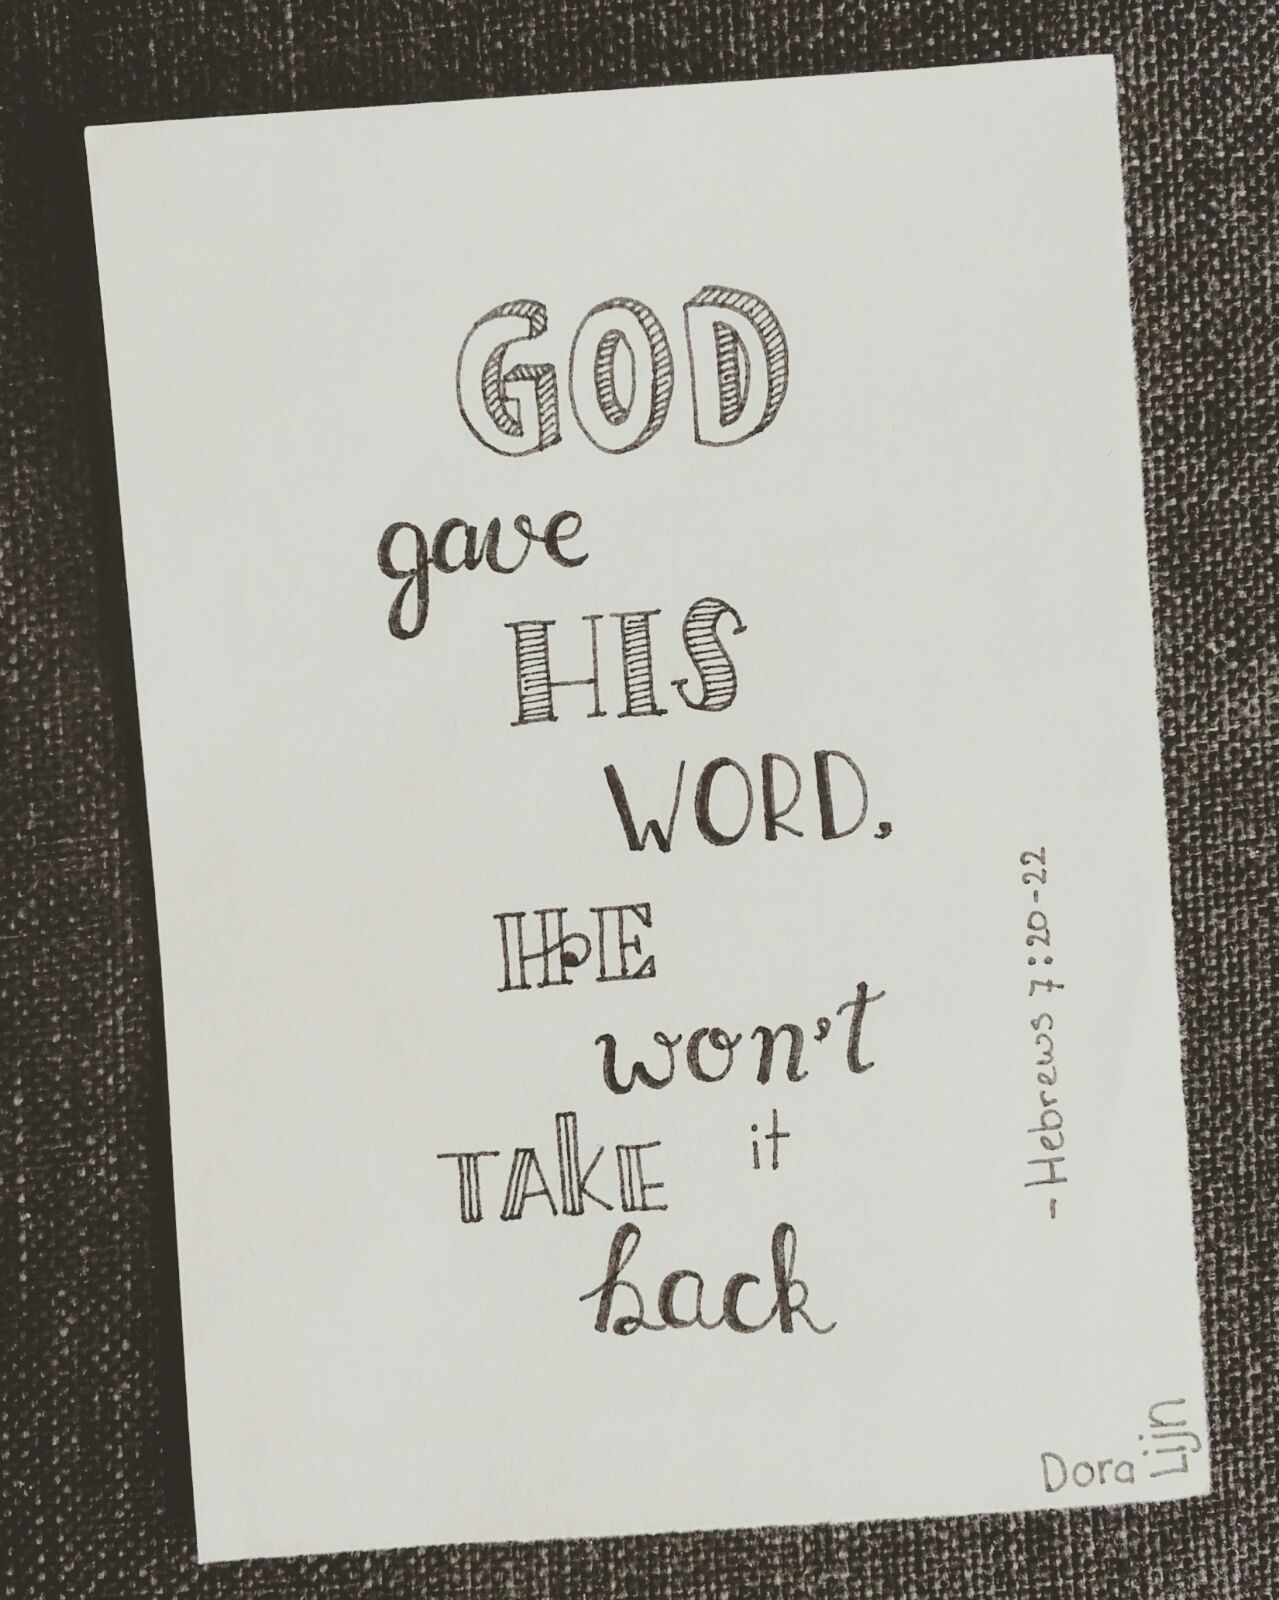 GOD
gave
HIS
WORD,
HE
won't
TAKE it
back
- Hebrews 7:20-22
Dora
Lijn